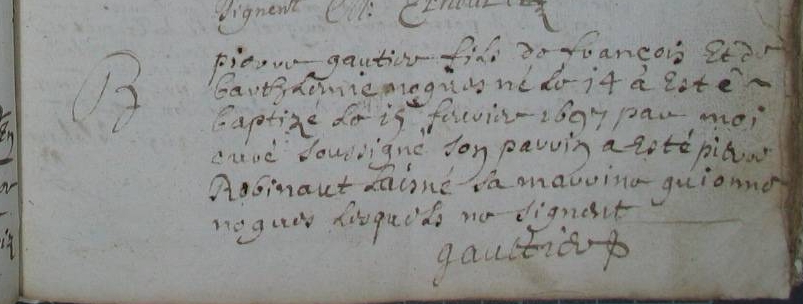 signent
B
pierre gautier fils de françois Et de
barthelemie nogues né le 14 a Esté
baptizé le 15 fevrier 1697 par moi
curé soussigné son parrin a Esté pierre
Robinaut laisné sa marrine guionne
nogues lesquels ne signent
gaultier